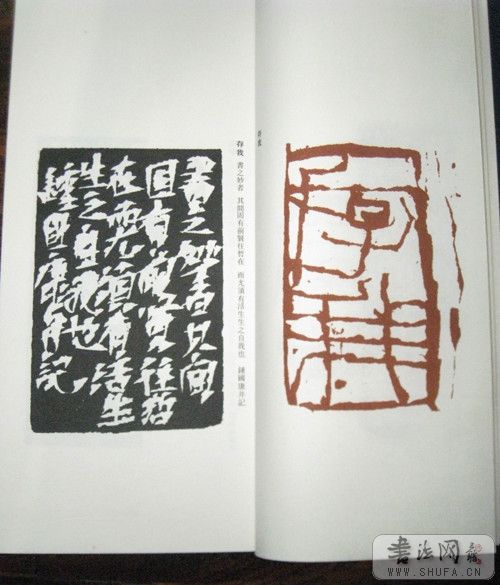 存我
存我
存我 書之妙者 其間固有前賢往哲在 而尤須有活生生之自我也 鍾國康并記
書之妙者其間
固有前賢往哲
在而尤須有活生
生之自我也
鍾國康并記
書法网
WWW.SHUFA.CN